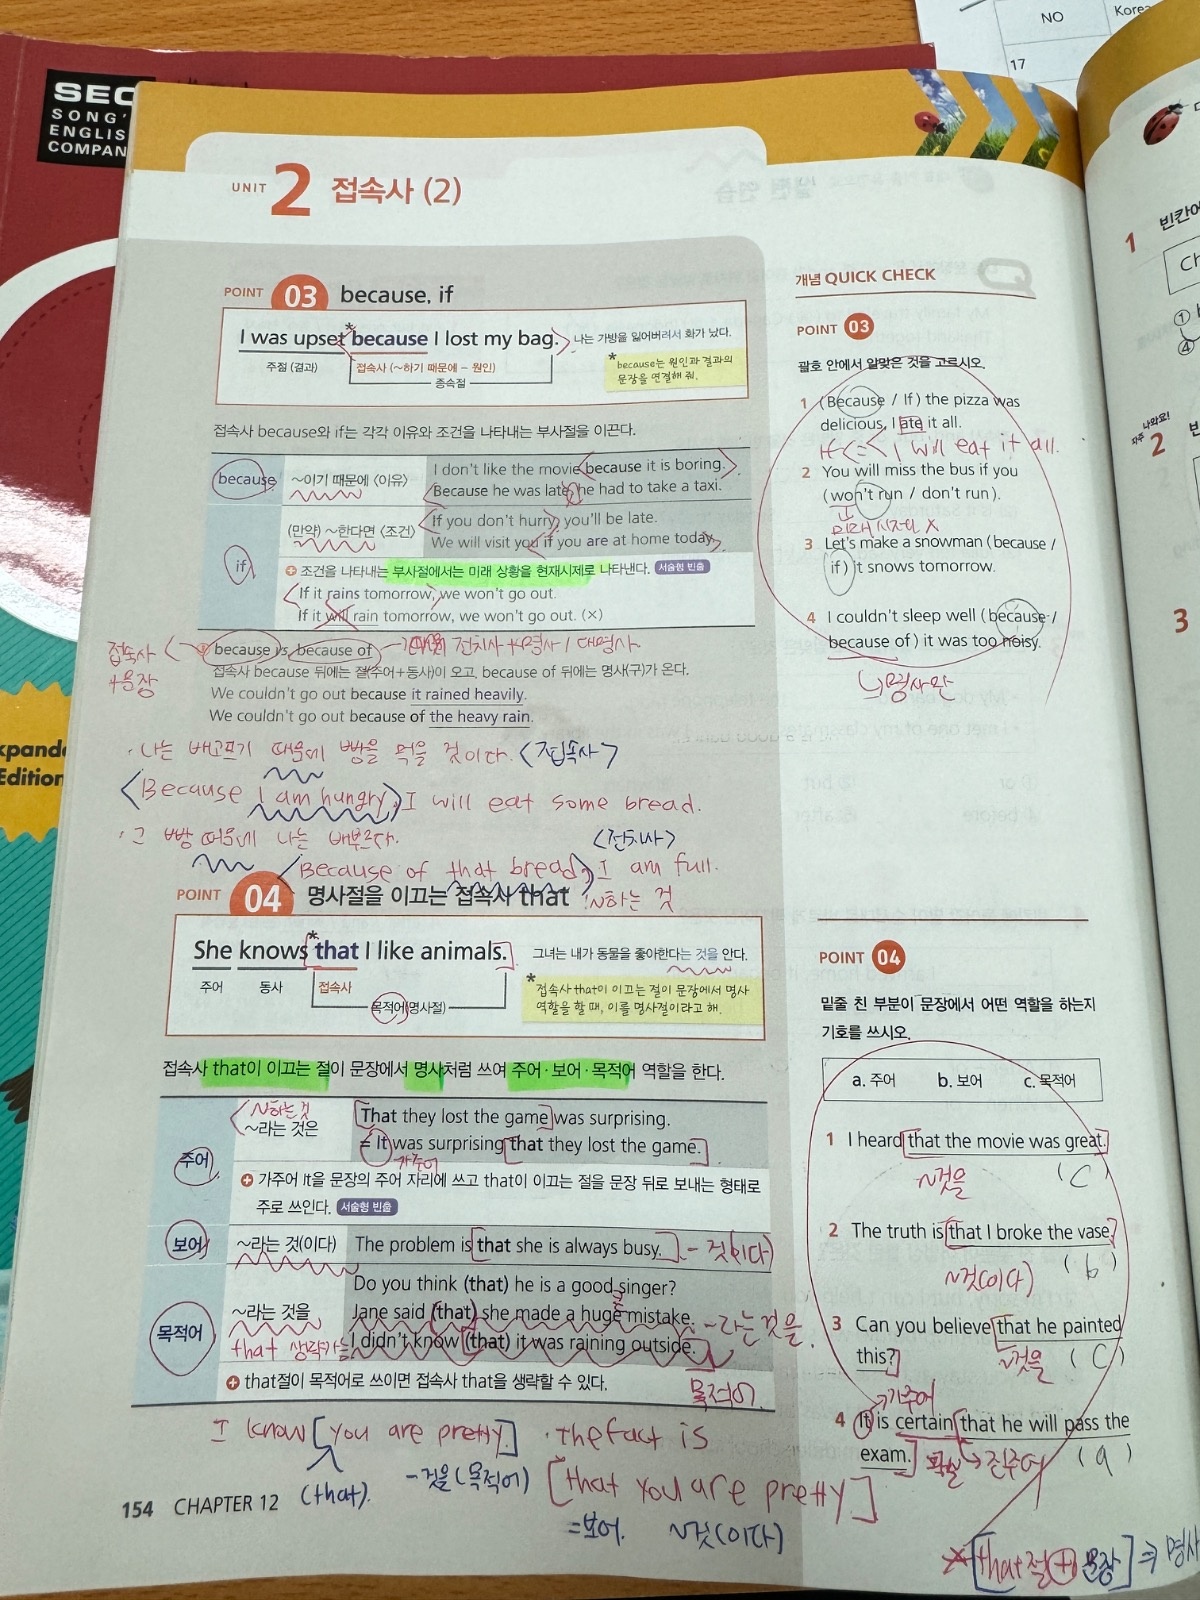 NO
Korea
17
SEC
SONG'
ENGLIS
COMPAN
xpand
Edition
UNIT 2 접속사 (2)
POINT 03 because, if
I was upset because I lost my bag. 나는 가방을 잃어버려서 화가 났다.
주절 (결과) 접속사 (~하기 때문에 – 원인)
종속절
* because는 원인과 결과의
문장을 연결해 줘.
접속사 because와 if는 각각 이유와 조건을 나타내는 부사절을 이끈다.
because ~이기 때문에 <이유> I don't like the movie because it is boring.
Because he was late, he had to take a taxi.
if (만약) ~한다면 <조건> If you don't hurry, you'll be late.
We will visit you if you are at home today.
조건을 나타내는 부사절에서는 미래 상황을 현재시제로 나타낸다. 서술형 빈출
If it rains tomorrow, we won't go out.
If it will rain tomorrow, we won't go out. (×)
접속사
+문장
because vs. because of 전치사 + 명사 / 대명사
접속사 because 뒤에는 절(주어+동사)이 오고, because of 뒤에는 명사(구)가 온다.
We couldn't go out because it rained heavily.
We couldn't go out because of the heavy rain.
· 나는 배고프기 때문에 빵을 먹을 것이다. <접속사>
<Because I am hungry>, I will eat some bread.
· 그 빵 때문에 나는 배부르다. <전치사>
<Because of that bread>, I am full.
POINT 04 명사절을 이끄는 접속사 that ~하는 것
She knows *that I like animals. 그녀는 내가 동물을 좋아한다는 것을 안다.
주어 동사 접속사
목적어(명사절)
* 접속사 that이 이끄는 절이 문장에서 명사
역할을 할 때, 이를 명사절이라고 해.
접속사 that이 이끄는 절이 문장에서 명사처럼 쓰여 주어·보어·목적어 역할을 한다.
~하는 것
주어 ~라는 것은 That they lost the game was surprising.
= It was surprising that they lost the game.
가주어
가주어 It을 문장의 주어 자리에 쓰고 that이 이끄는 절을 문장 뒤로 보내는 형태로
주로 쓰인다. 서술형 빈출
보어 ~라는 것(이다) The problem is that she is always busy. - 것(이다)
목적어 ~라는 것을 Do you think (that) he is a good singer?
Jane said (that) she made a huge mistake. -라는 것을.
that 생략가능 I didn't know (that) it was raining outside.
that절이 목적어로 쓰이면 접속사 that을 생략할 수 있다. 목적어.
I know [you are pretty]. · the fact is
(that). -것을(목적어) [that you are pretty]
=보어. ~것(이다)
154 CHAPTER 12
개념 QUICK CHECK
POINT 03
괄호 안에서 알맞은 것을 고르시오.
1 (Because / If) the pizza was
delicious, I ate it all.
If will eat it all.
2 You will miss the bus if you
(won't run / don't run).
미래시제 X
3 Let's make a snowman (because /
if) it snows tomorrow.
4 I couldn't sleep well (because /
because of) it was too noisy.
명사만
POINT 04
밑줄 친 부분이 문장에서 어떤 역할을 하는지
기호를 쓰시오.
a. 주어 b. 보어 c. 목적어
1 I heard that the movie was great.
~것을 (C)
2 The truth is that I broke the vase.
~것(이다) (b)
3 Can you believe that he painted
this? ~것을 (C)
가주어
4 It is certain that he will pass the
exam. 확실 진주어 (a)
[that절 + 문장] ⇒ 명사
1 빈칸에
①
④
자주 나와요!
2
3